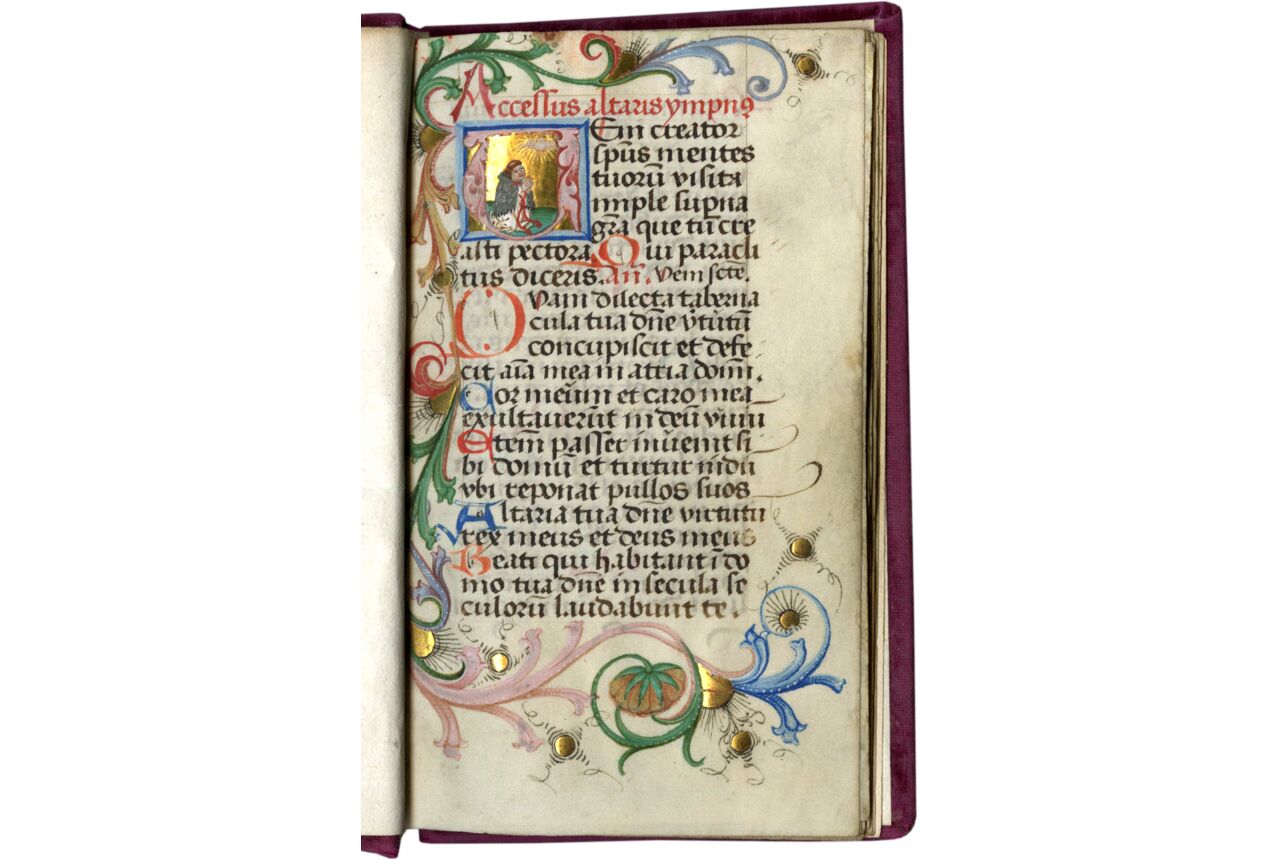 Accessus altaris ympnꝰ
Veni creator
sp̄us mentes
tuorū visita
imple sup̲na
gr̄a que tu cre
asti pectora Qui paracli
tus diceris. An̄. Veni sct̄e.
Quam dilecta taberna
cula tua dn̄e v̄tutū
concupiscit et defe
cit aīa mea in atria domī.
Cor meūm et caro mea
exultaverūt in deū vivū
Etem̄ passer īnvenit si
bi domū et turtur nidū
vbi reponat pullos suos
Altaria tua dn̄e virtutū
rex meus et deus meus
Beati qui habitant ī do
mo tua dn̄e in secula se
culorū laudabunt te.